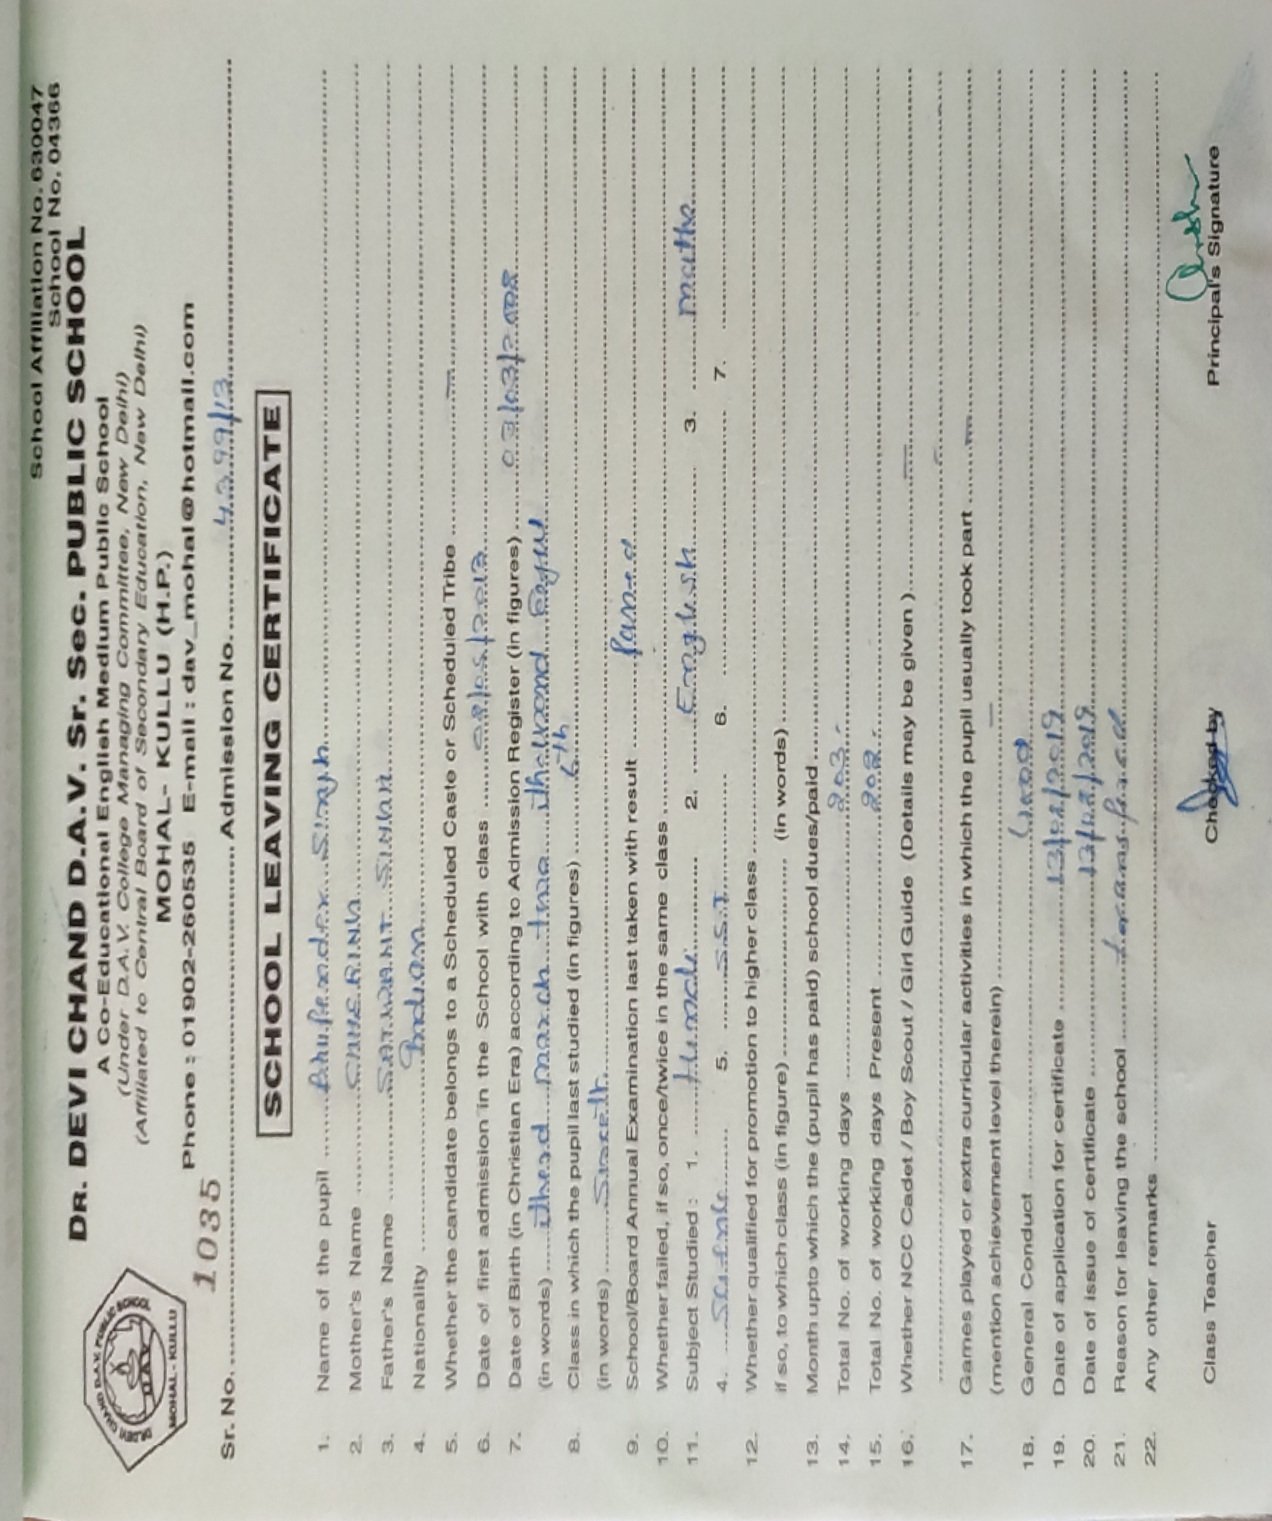 School Affiliation No. 630047
School No. 04366
DR. DEVI CHAND D.A.V. Sr. Sec. PUBLIC SCHOOL
A Co-Educational English Medium Public School
(Under D.A.V. College Managing Committee, New Delhi)
(Affiliated to Central Board of Secondary Education, New Delhi)
MOHAL- KULLU (H.P.)
Phone : 01902-260535 E-mail : dav_mohal@hotmail.com
DAV
MOHAL - KULLU
Sr. No. 1035 Admission No. 4299/13
SCHOOL LEAVING CERTIFICATE
1. Name of the pupil Bhupender Singh
2. Mother's Name CHHERING
3. Father's Name SATWANT SINGH
4. Nationality Indian
5. Whether the candidate belongs to a Scheduled Caste or Scheduled Tribe —
6. Date of first admission in the School with class
7. Date of Birth (in Christian Era) according to Admission Register (in figures) 03/03/2008
(in words) third march two thousand eight
8. Class in which the pupil last studied (in figures) 6th
(in words) Sixth
9. School/Board Annual Examination last taken with result Passed
10. Whether failed, if so, once/twice in the same class
11. Subject Studied : 1. Hindi 2. English 3. maths
4. 5. S.S.T 6. 7.
12. Whether qualified for promotion to higher class
if so, to which class (in figure) (in words)
13. Month upto which the (pupil has paid) school dues/paid
14. Total No. of working days 203
15. Total No. of working days Present 202
16. Whether NCC Cadet / Boy Scout / Girl Guide (Details may be given ) —
17. Games played or extra curricular activities in which the pupil usually took part —
(mention achievement level therein) —
18. General Conduct Good
19. Date of application for certificate 13/12/2019
20. Date of issue of certificate 13/12/2019
21. Reason for leaving the school
22. Any other remarks
Class Teacher Checked by Principal's Signature